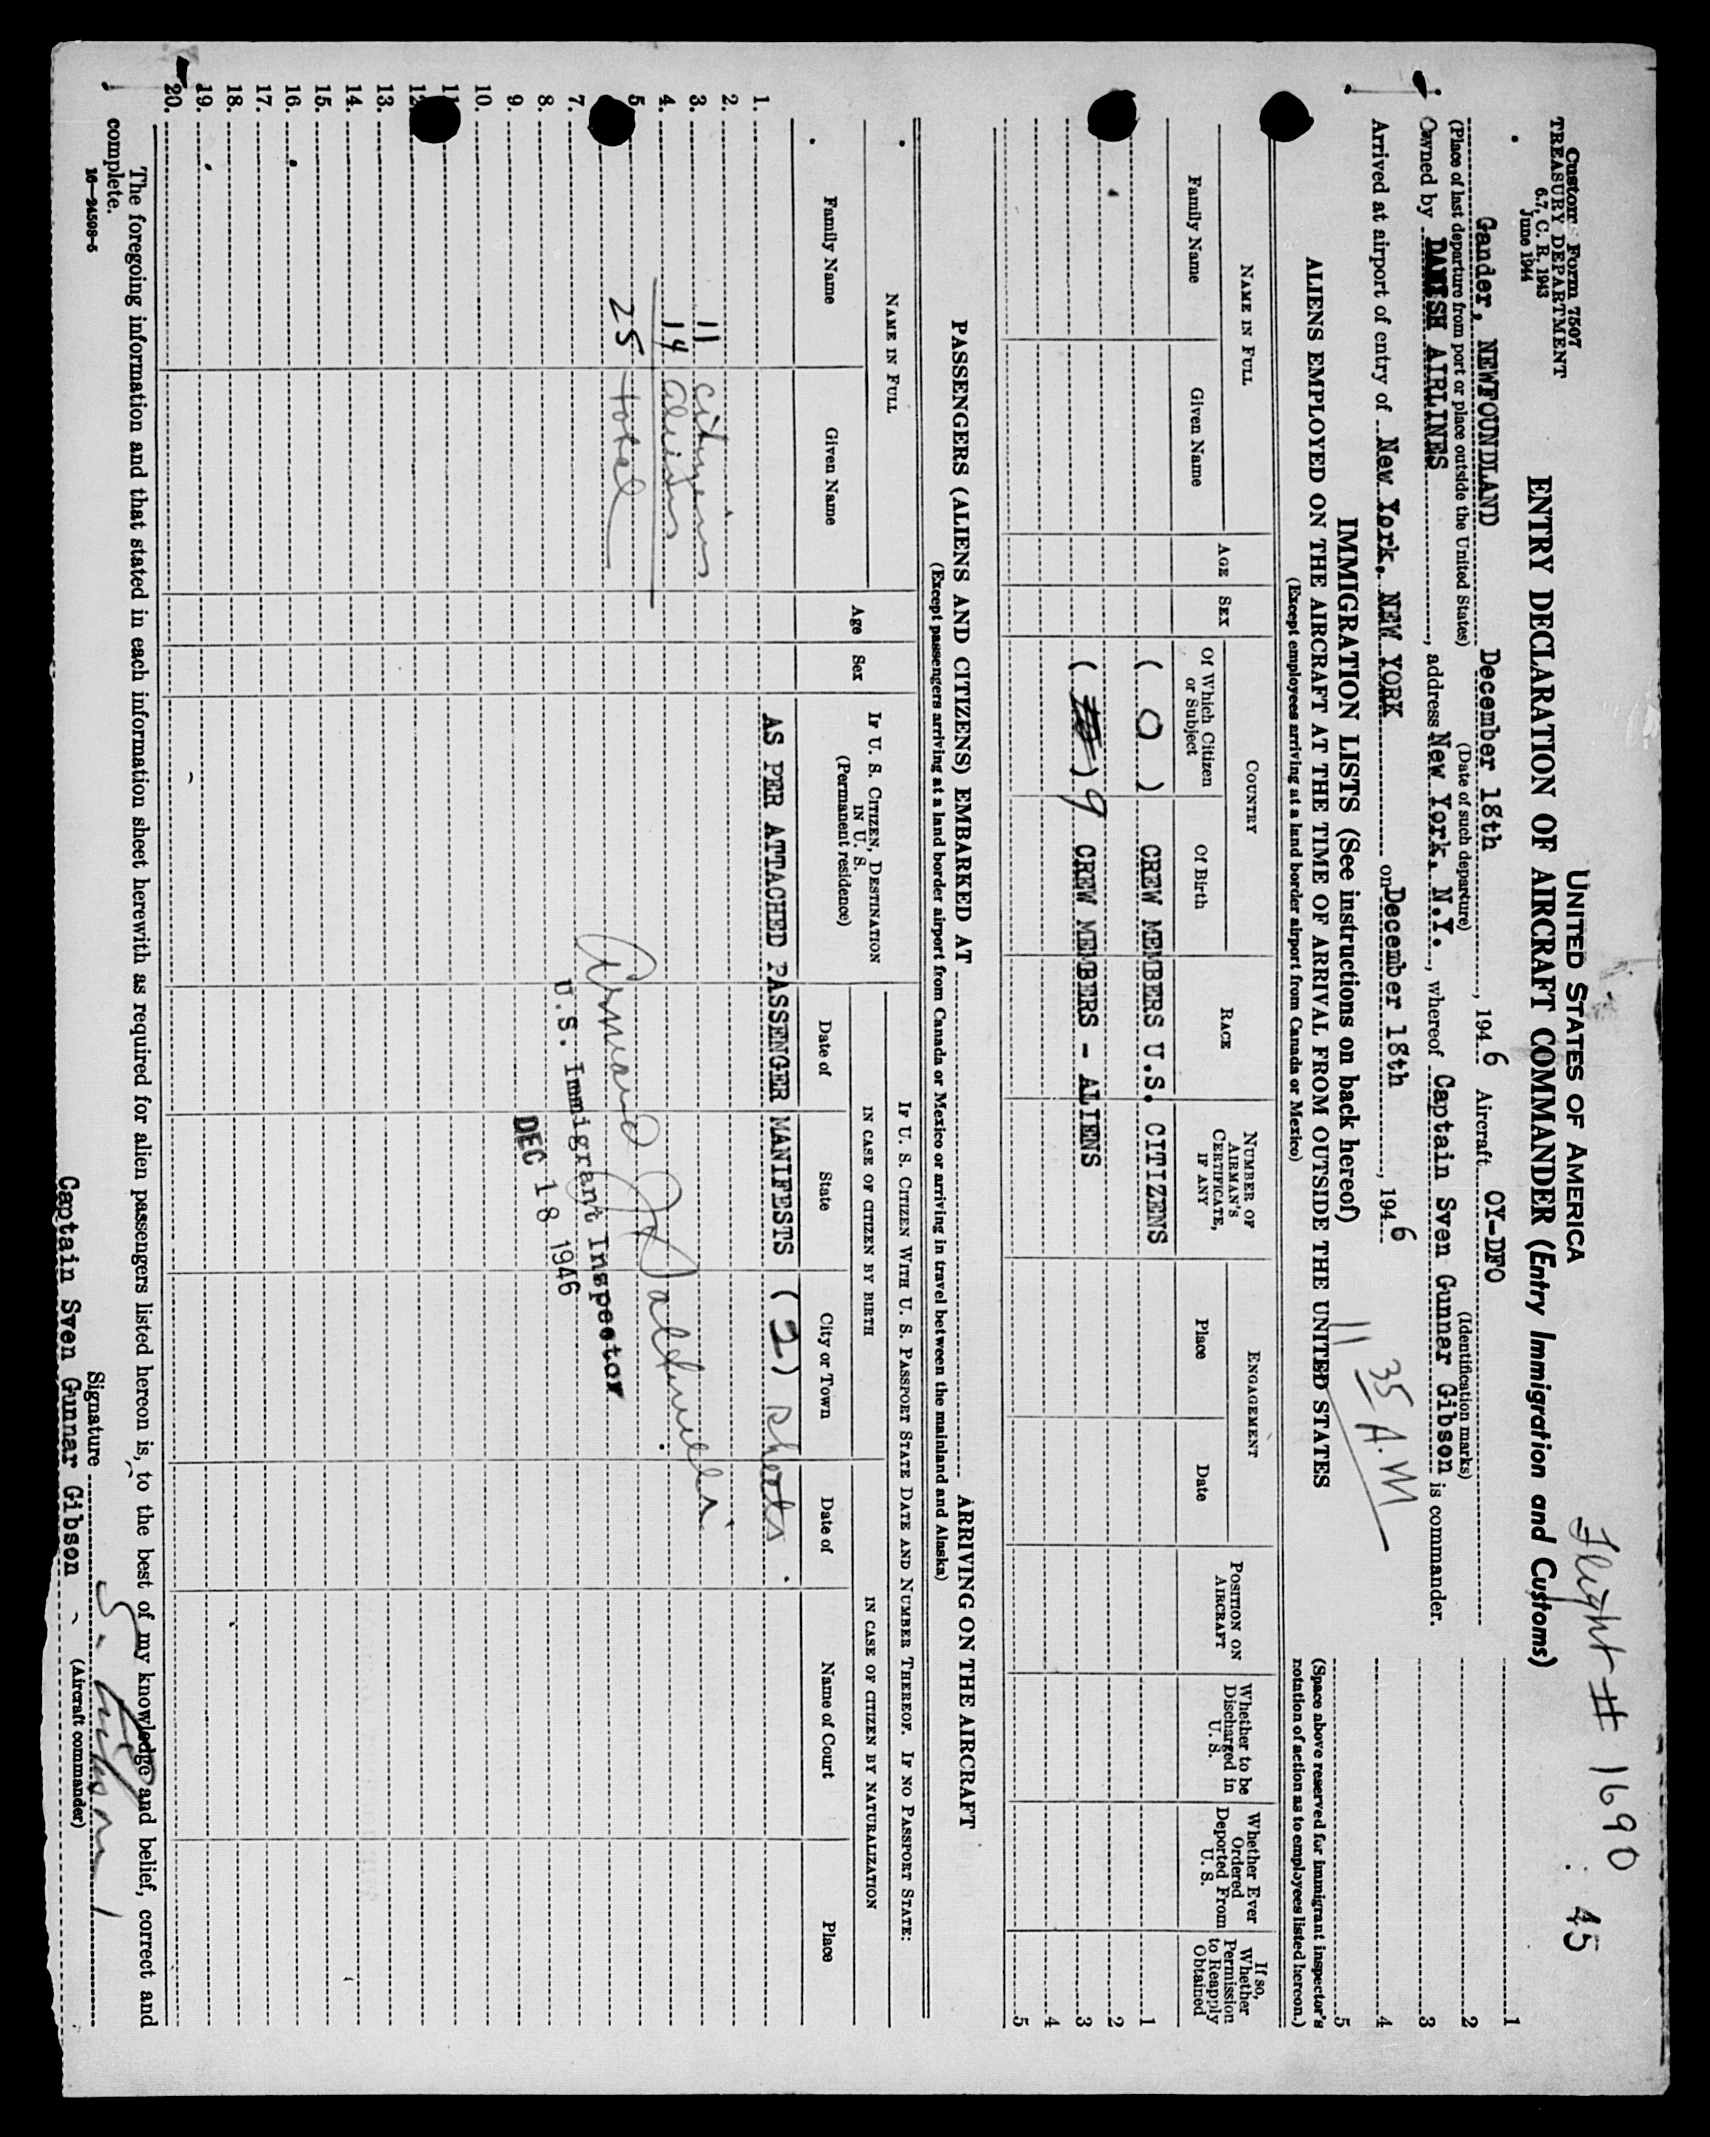 Flight # 1690
45
Customs Form 7507
TREASURY DEPARTMENT
6.7, C. R. 1943
June 1944
UNITED STATES OF AMERICA
ENTRY DECLARATION OF AIRCRAFT COMMANDER (Entry Immigration and Customs)
Gander, NEWFOUNDLAND December 18th, 1946 Aircraft OY-DFO
(Place of last departure from port or place outside the United States) (Date of such departure) (Identification marks)
Owned by DANISH AIRLINES, address New York, N.Y., whereof Captain Sven Gunnar Gibson is commander.
Arrived at airport of entry of New York, NEW YORK on December 18th, 1946
11 35 A.M
1
2
3
4
5
IMMIGRATION LISTS (See instructions on back hereof)
(Space above reserved for immigrant inspector's notation of action as to employees listed hereon.)
ALIENS EMPLOYED ON THE AIRCRAFT AT THE TIME OF ARRIVAL FROM OUTSIDE THE UNITED STATES
(Except employees arriving at a land border airport from Canada or Mexico)
NAME IN FULL
Family Name
Given Name
AGE
SEX
COUNTRY
Of Which Citizen or Subject
Of Birth
RACE
NUMBER OF AIRMAN'S CERTIFICATE, IF ANY
ENGAGEMENT
Place
Date
POSITION ON AIRCRAFT
Whether to be Discharged in U. S.
Whether Ever Ordered Deported From U. S.
If so, Whether Permission to Reapply Obtained
( 0 ) CREW MEMBERS U.S. CITIZENS 1
2
( ) 9 CREW MEMBERS - ALIENS 3
4
5
PASSENGERS (ALIENS AND CITIZENS) EMBARKED AT ARRIVING ON THE AIRCRAFT
(Except passengers arriving at a land border airport from Canada or Mexico or arriving in travel between the mainland and Alaska)
NAME IN FULL
Family Name
Given Name
Age
Sex
IF U. S. CITIZEN, DESTINATION IN U. S.
(Permanent residence)
IF U. S. CITIZEN WITH U. S. PASSPORT STATE DATE AND NUMBER THEREOF. IF NO PASSPORT STATE:
IN CASE OF CITIZEN BY BIRTH
IN CASE OF CITIZEN BY NATURALIZATION
Date of
State
City or Town
Date of
Name of Court
Place
1. AS PER ATTACHED PASSENGER MANIFESTS (2) sheets.
2.
3. 11 citizens
4. 14 aliens
5. 25 total
7.
8.
9.
10.
11
12
13.
14.
15.
16.
17.
18.
19.
20.
Armand J.
U.S. Immigrant Inspector
DEC 18 1946
The foregoing information and that stated in each information sheet herewith as required for alien passengers listed hereon is, to the best of my knowledge and belief, correct and complete.
16—24508-5
Signature S. Gibson
Captain Sven Gunnar Gibson (Aircraft commander)